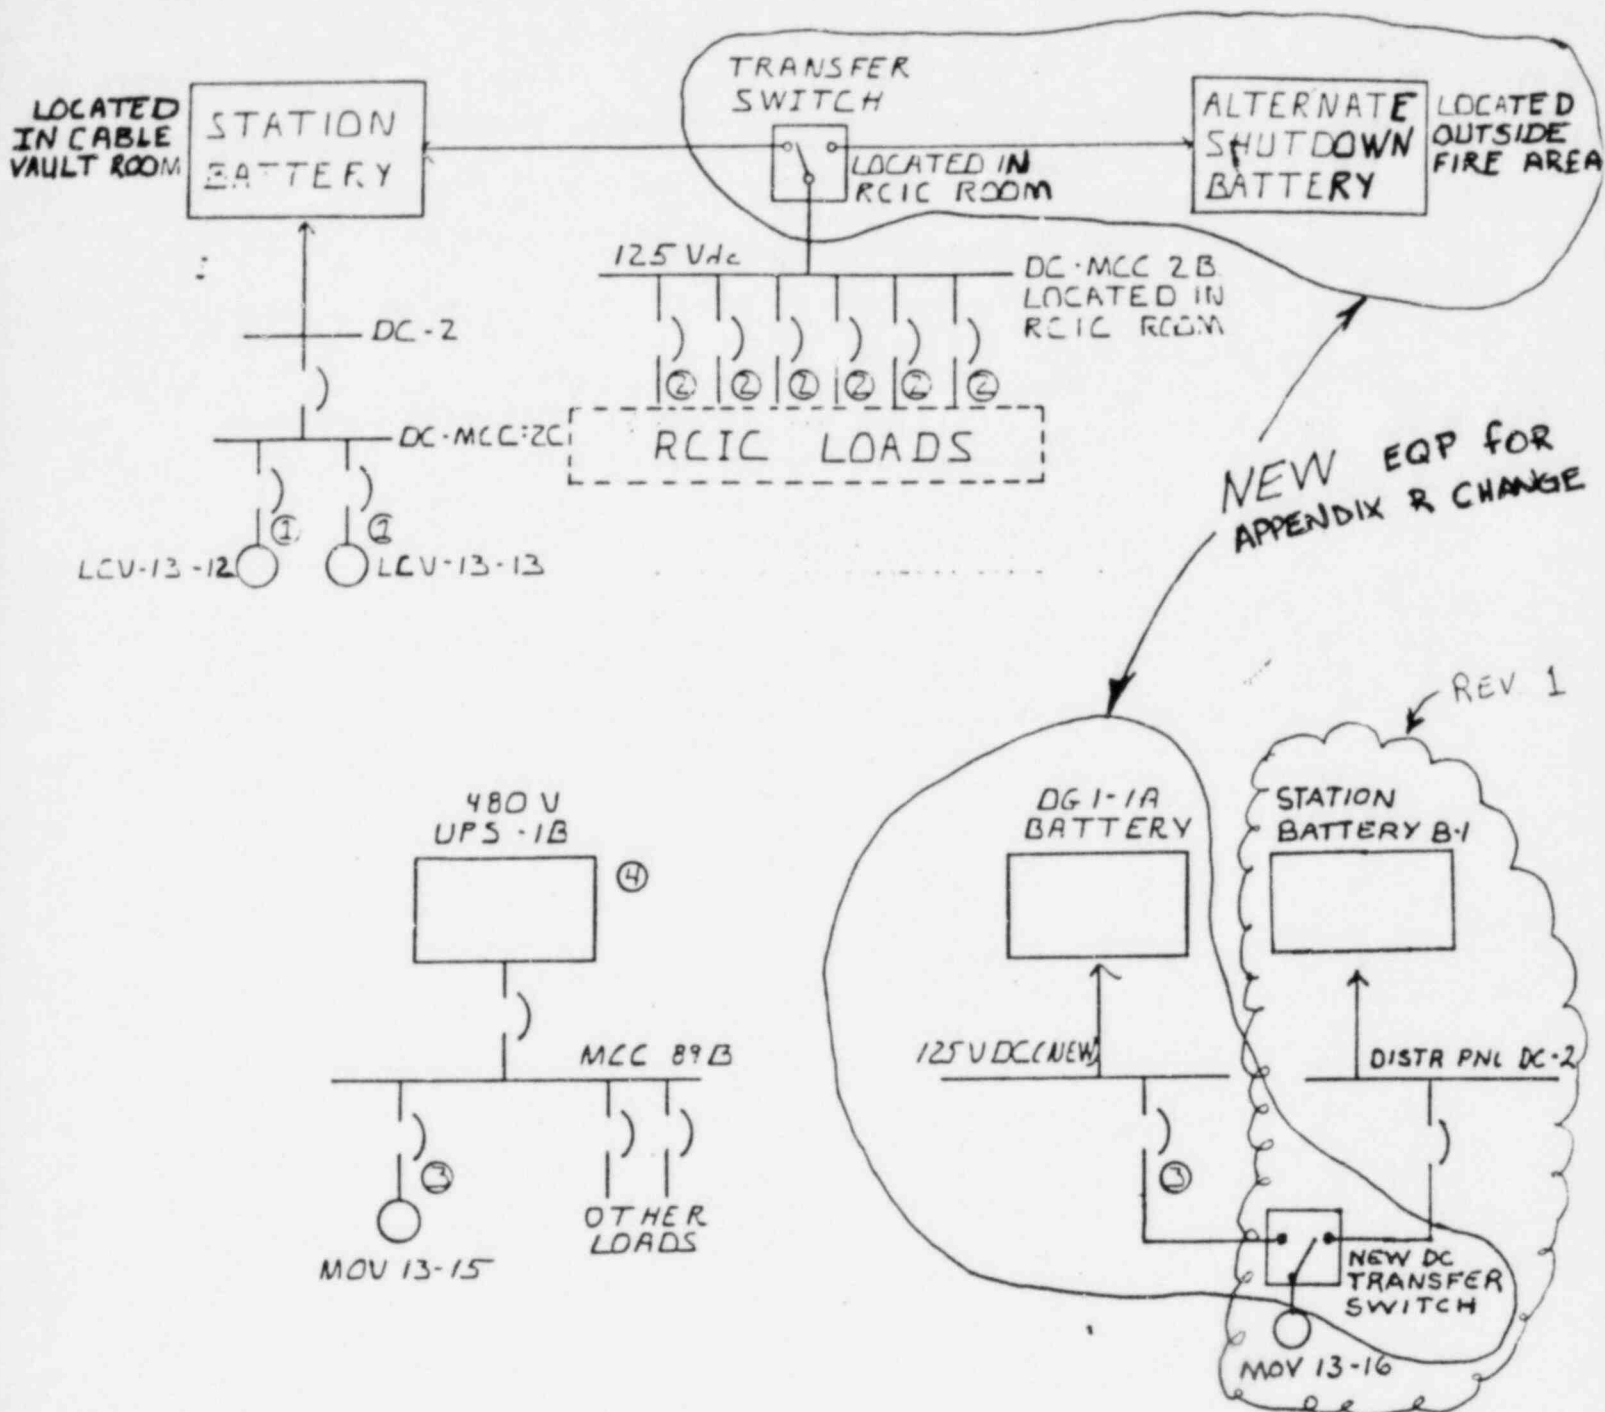 LOCATED
IN CABLE
VAULT ROOM
STATION
BATTERY
TRANSFER
SWITCH
LOCATED IN
RCIC ROOM
ALTERNATE
SHUTDOWN
BATTERY
LOCATED
OUTSIDE
FIRE AREA
125 Vdc
DC-MCC 2B
LOCATED IN
RCIC ROOM
DC-2
2 2 2 2 2 2
DC-MCC-2C
RCIC LOADS
1 1
LCV-13-12
LCV-13-13
NEW EQP FOR
APPENDIX R CHANGE
REV 1
480 V
UPS-1B
4
DG 1-1A
BATTERY
STATION
BATTERY B-1
MCC 89B
125 V DC (NEW)
DISTR PNL DC-2
3
3
OTHER
LOADS
MOV 13-15
NEW DC
TRANSFER
SWITCH
MOV 13-16